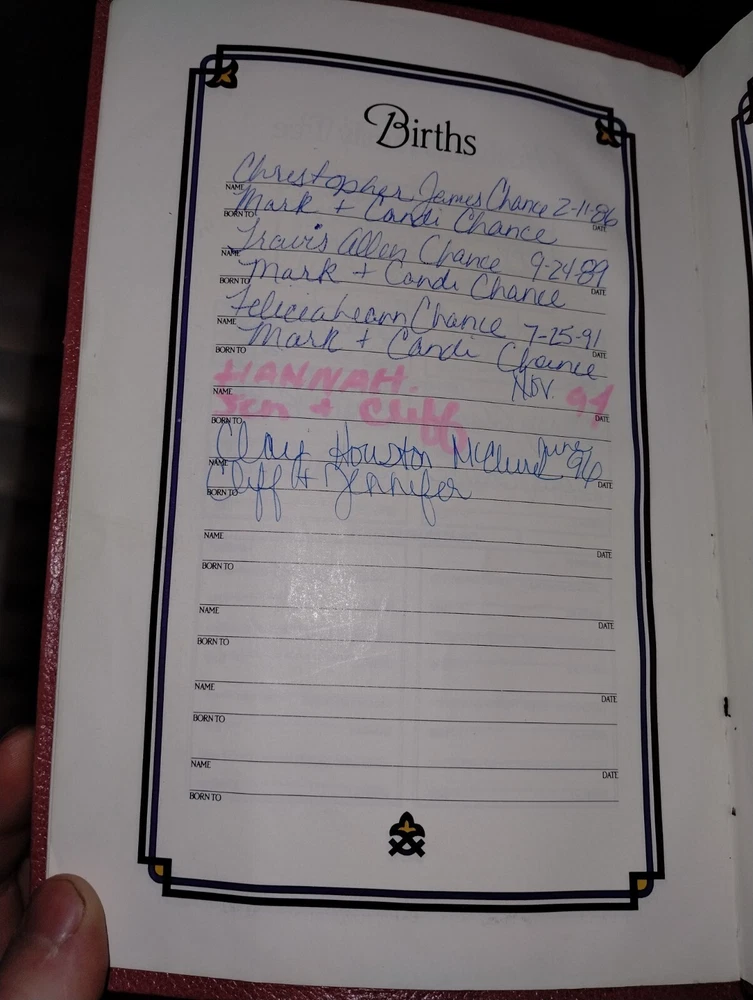 Births
Christopher James Chance 2-11-86
NAME DATE
Mark + Candi Chance
BORN TO
Travis Allen Chance 9-24-89
NAME DATE
Mark + Candi Chance
BORN TO
Felicia Leann Chance 7-25-91
NAME DATE
Mark + Candi Chance
BORN TO
HANNAH. Nov. 94
NAME DATE
Jen + Cliff
BORN TO
Clay Houston McClure June 96
NAME DATE
Cliff + Jennifer
BORN TO
NAME DATE
BORN TO
NAME DATE
BORN TO
NAME DATE
BORN TO
NAME DATE
BORN TO